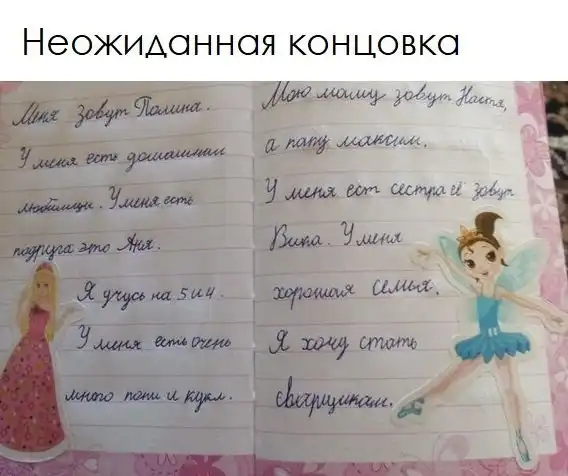 Неожиданная концовка
Меня зовут Полина.
У меня есть домашнии
любимици. У меня есть
подруга это Аня.
Я учусь на 5 и 4.
У меня есть очень
много пони и кукл.
Мою маму зовут Настя,
а папу максим.
У меня ест сестра её зовут
Вика. У меня
хорошая семья.
Я хочу стать
сварщикам.